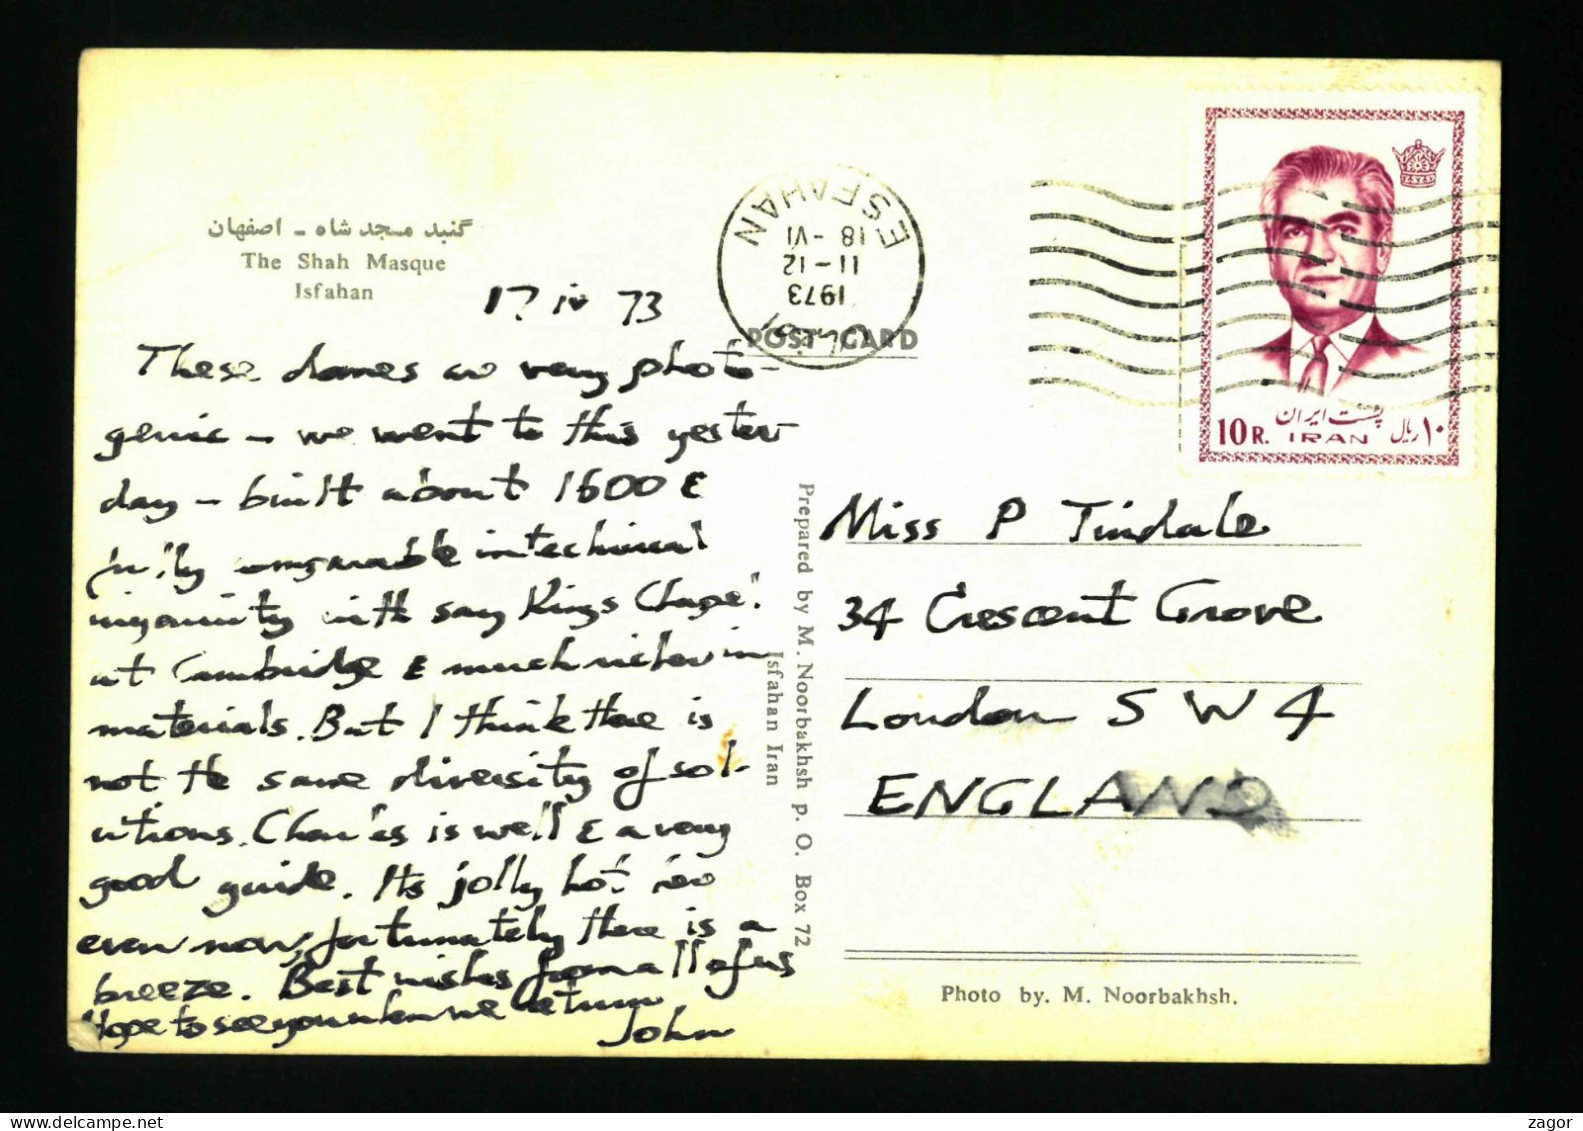 گنبد مسجد شاه - اصفهان
The Shah Masque
Isfahan
17 iv 73
These domes are very photo-
genic - we went to this yester
day - built about 1600 &
fully comparable in technical
ingenuity with say Kings Chapel
at Cambridge & much richer in
materials. But I think there is
not the same diversity of sol-
utions. Charles is well & a very
good guide. Its jolly hot
even now, fortunately there is a
breeze. Best wishes from all of us
Hope to see you when we return
John
ESFAHAN
18 - VI
11 - 12
1973
POST CARD
پست ایران
10 R. IRAN ۱۰ ریال
Prepared by M. Noorbakhsh p. O. Box 72
Isfahan Iran
Miss P Tindale
34 Crescent Grove
London S W 4
ENGLAND
Photo by. M. Noorbakhsh.
zagor